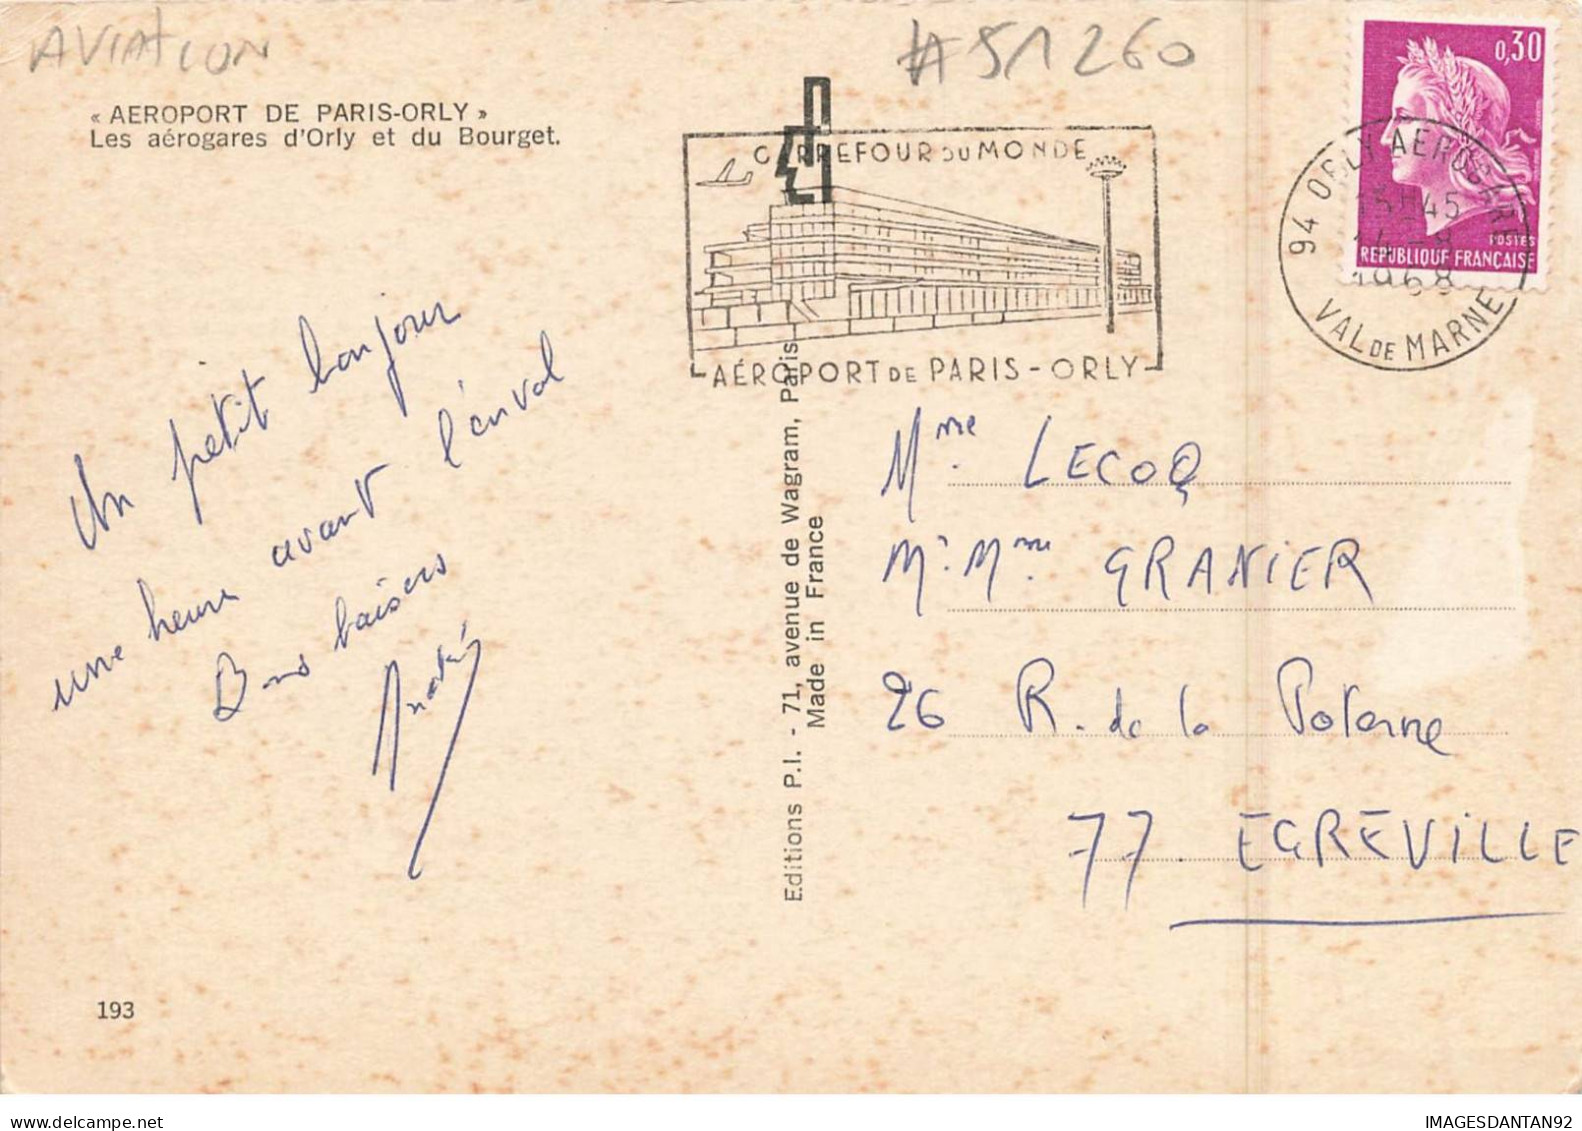 AVIATION
#51260
« AEROPORT DE PARIS-ORLY »
Les aérogares d'Orly et du Bourget.
CARREFOUR DU MONDE
AÉROPORT DE PARIS - ORLY
0,30
POSTES
REPUBLIQUE FRANÇAISE
94 ORLY AEROGARE
15H45
1968
VAL DE MARNE
Un petit bonjour
une heure avant l'envol
Bons baisers
Mme LECOQ
Mr. Mme GRANIER
26 R. de la Poterne
77. EGREVILLE
Editions P.I. - 71, avenue de Wagram, Paris
Made in France
193
IMAGESDANTAN92